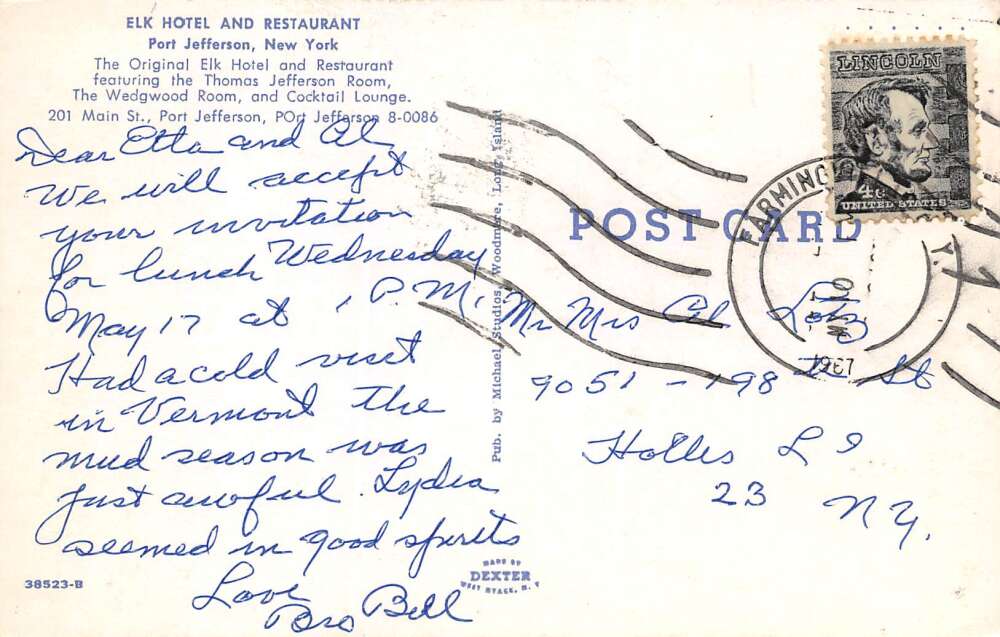 ELK HOTEL AND RESTAURANT
Port Jefferson, New York
The Original Elk Hotel and Restaurant
featuring the Thomas Jefferson Room,
The Wedgwood Room, and Cocktail Lounge.
201 Main St., Port Jefferson, POrt Jefferson 8-0086
Dear Etta and Al
We will accept
your invitation
for lunch Wednesday
May 17 at 1 P.M.
Had a cold visit
in Vermont the
mud season was
just awful. Lydia
seemed in good spirits
Love
Bro Bill
38523-B
MADE BY
DEXTER
WEST NYACK, N. Y.
Pub. by Michael Studios, Woodmere, Long Island
POST CARD
LINCOLN
4¢
UNITED STATES
FARMING
Y.
1967
Mr Mrs Al Lotz
9051 - 198 St
Hollis L I
23 N Y.